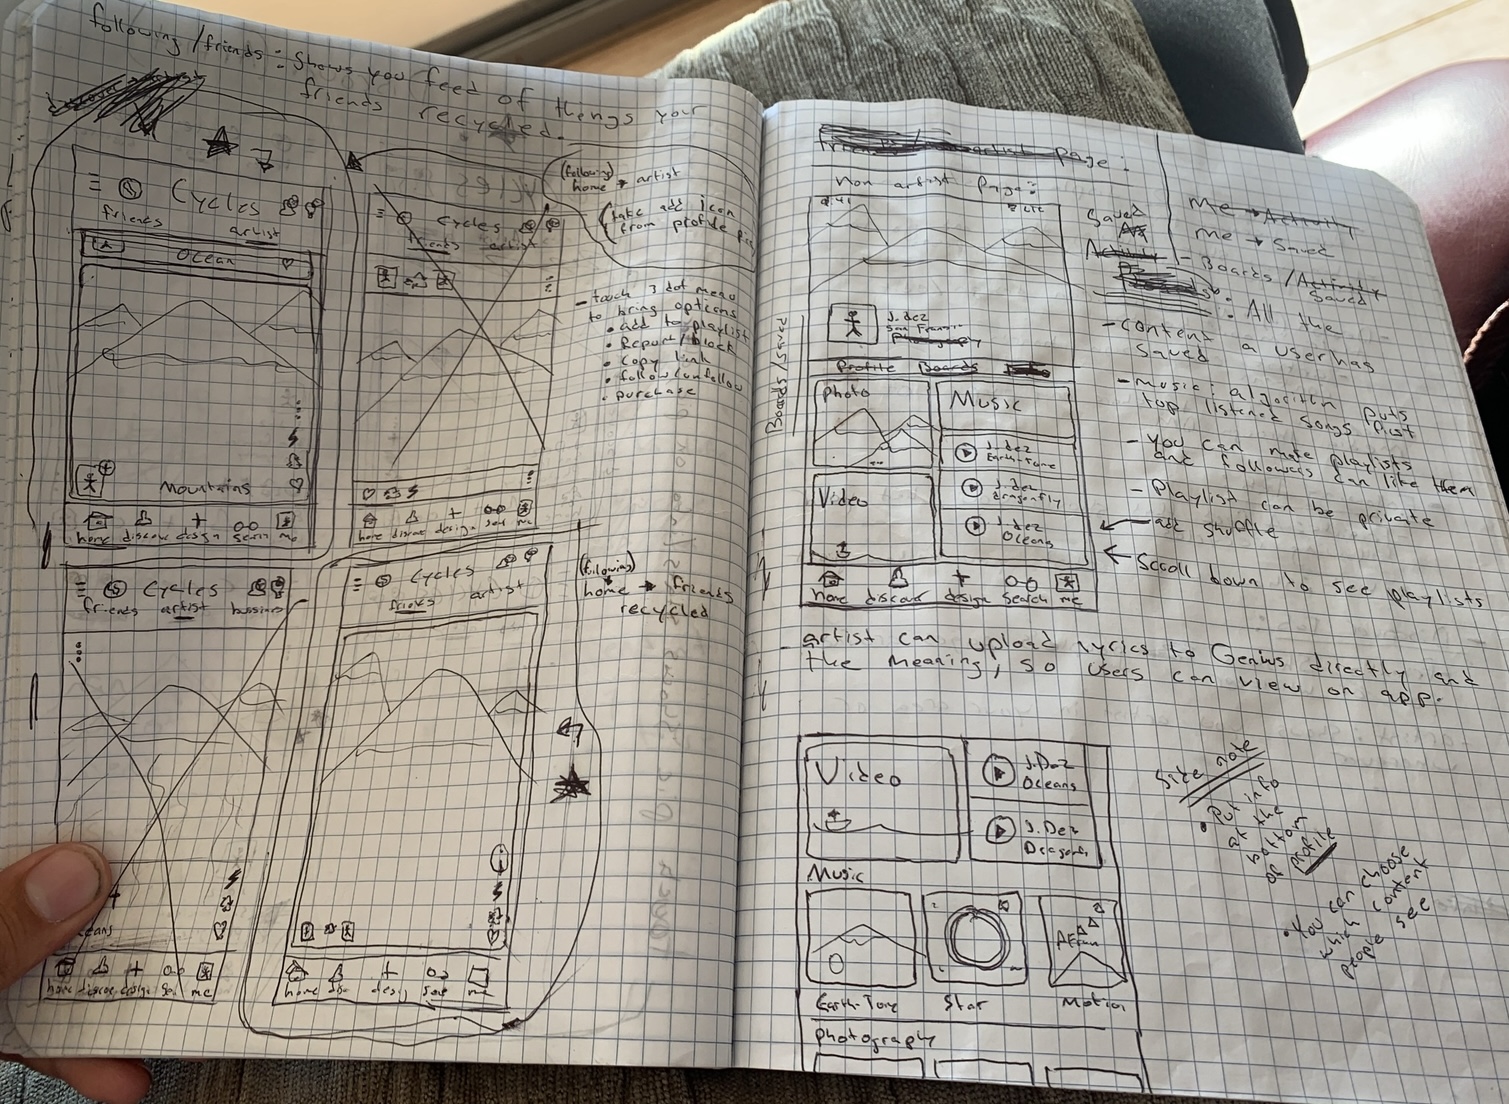 following/friends: Shows you feed of things your
friends recycled.
Cycles
friends
artist
Ocean
Mountains
home discover design search me
Cycles
friends artist
home discover design search me
(following)
home → artist
(take add icon
from profile pic
- touch 3 dot menu
to bring options
• add to playlist
• Report/block
• Copy link
• follow/unfollow
• purchase
Cycles
friends artist bussines
eans
home discover design me
Cycles
friends artist
home dis desig me
(following)
home → friends
recycled
artist page:
non artist page:
9:41
LTE
J.dez
San Fransi
Profile Boards
Boards/Saved
Photo
Music
J.dez
Earth-Tone
J.dez
dragonfly
J.dez
Oceans
Video
home discover design search me
Saved
Me → Activity
Me → Saved
- Boards/Activity
Saved
: All the
content a user has
saved
- music: algorithm puts
top listened songs first
- You can make playlists
and followers can like them
- Playlist can be private
add shuffle
Scroll down to see playlists
- artist can upload lyrics to Genius directly and
the meaning, so users can view on app.
Video
J.Dez
Oceans
J.Dez
Dragonfly
Music
Earth-Tone
Star
Motion
photography
Side note
• Put info
at the
bottom
of profile
• You can choose
which content
people see